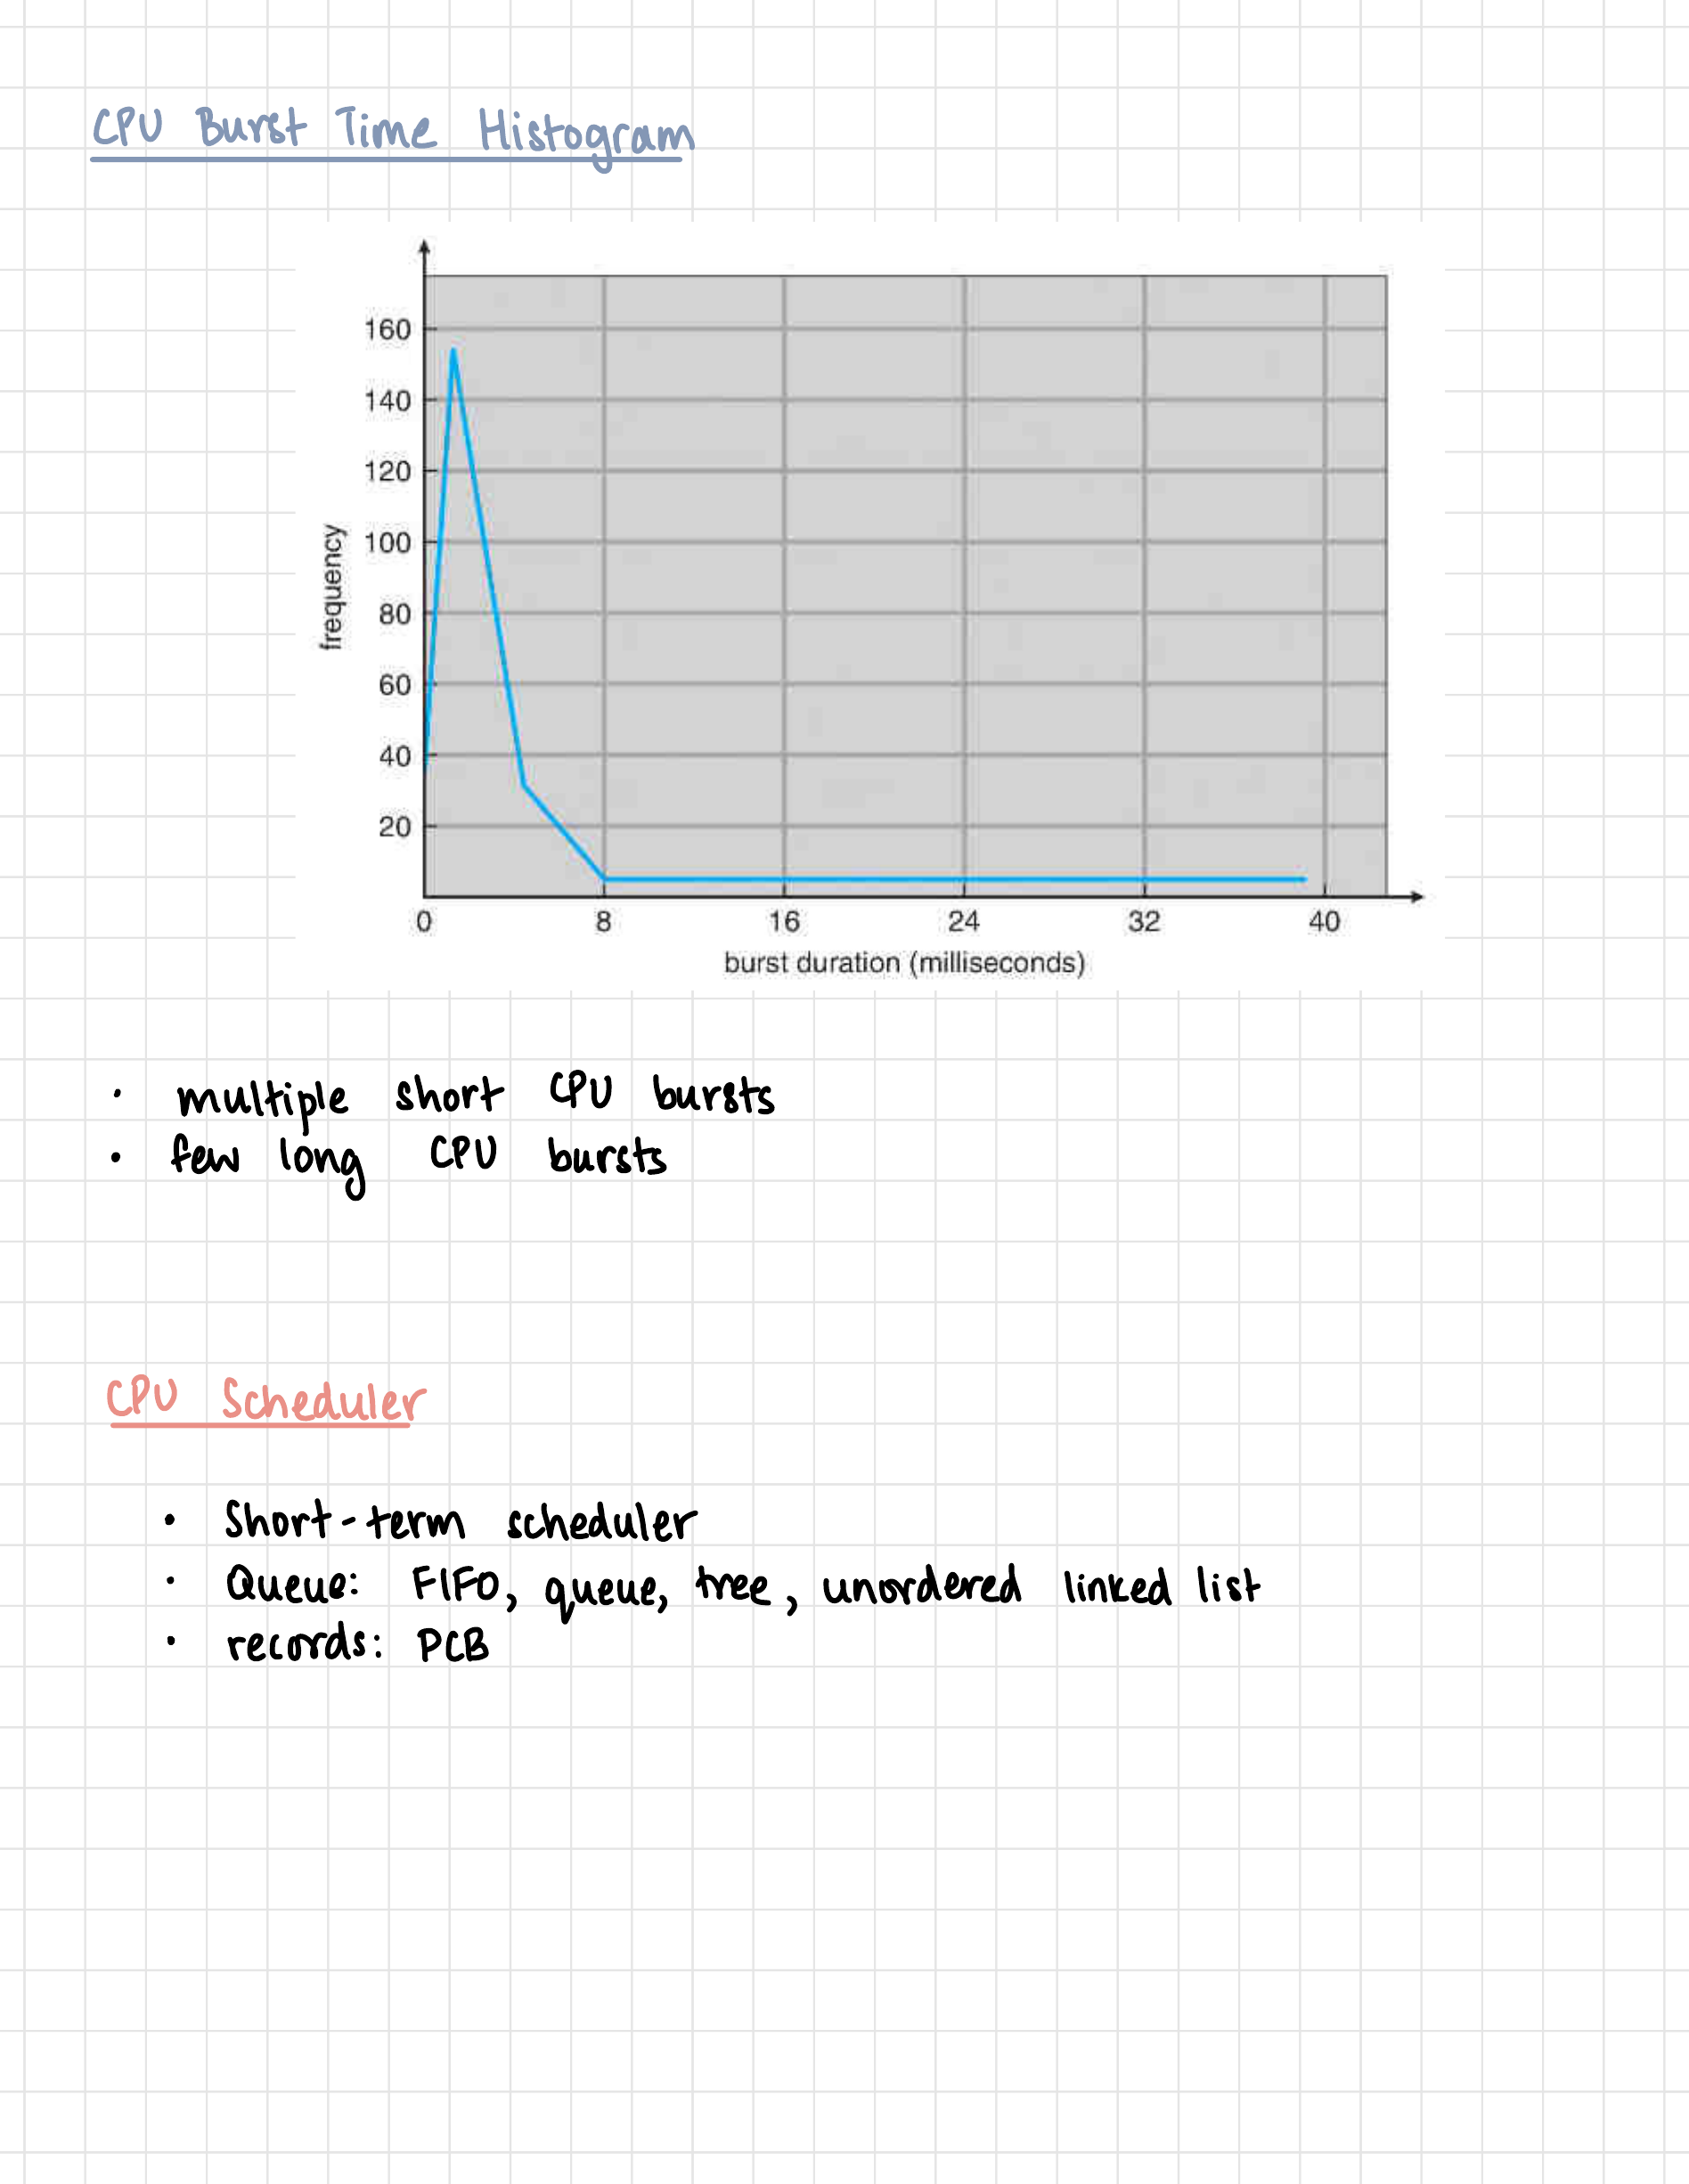 CPU Burst Time Histogram
160
140
120
100
80
60
40
20
frequency
0 8 16 24 32 40
burst duration (milliseconds)
• multiple short CPU bursts
• few long CPU bursts
CPU Scheduler
• Short-term scheduler
• Queue: FIFO, queue, tree, unordered linked list
• records: PCB